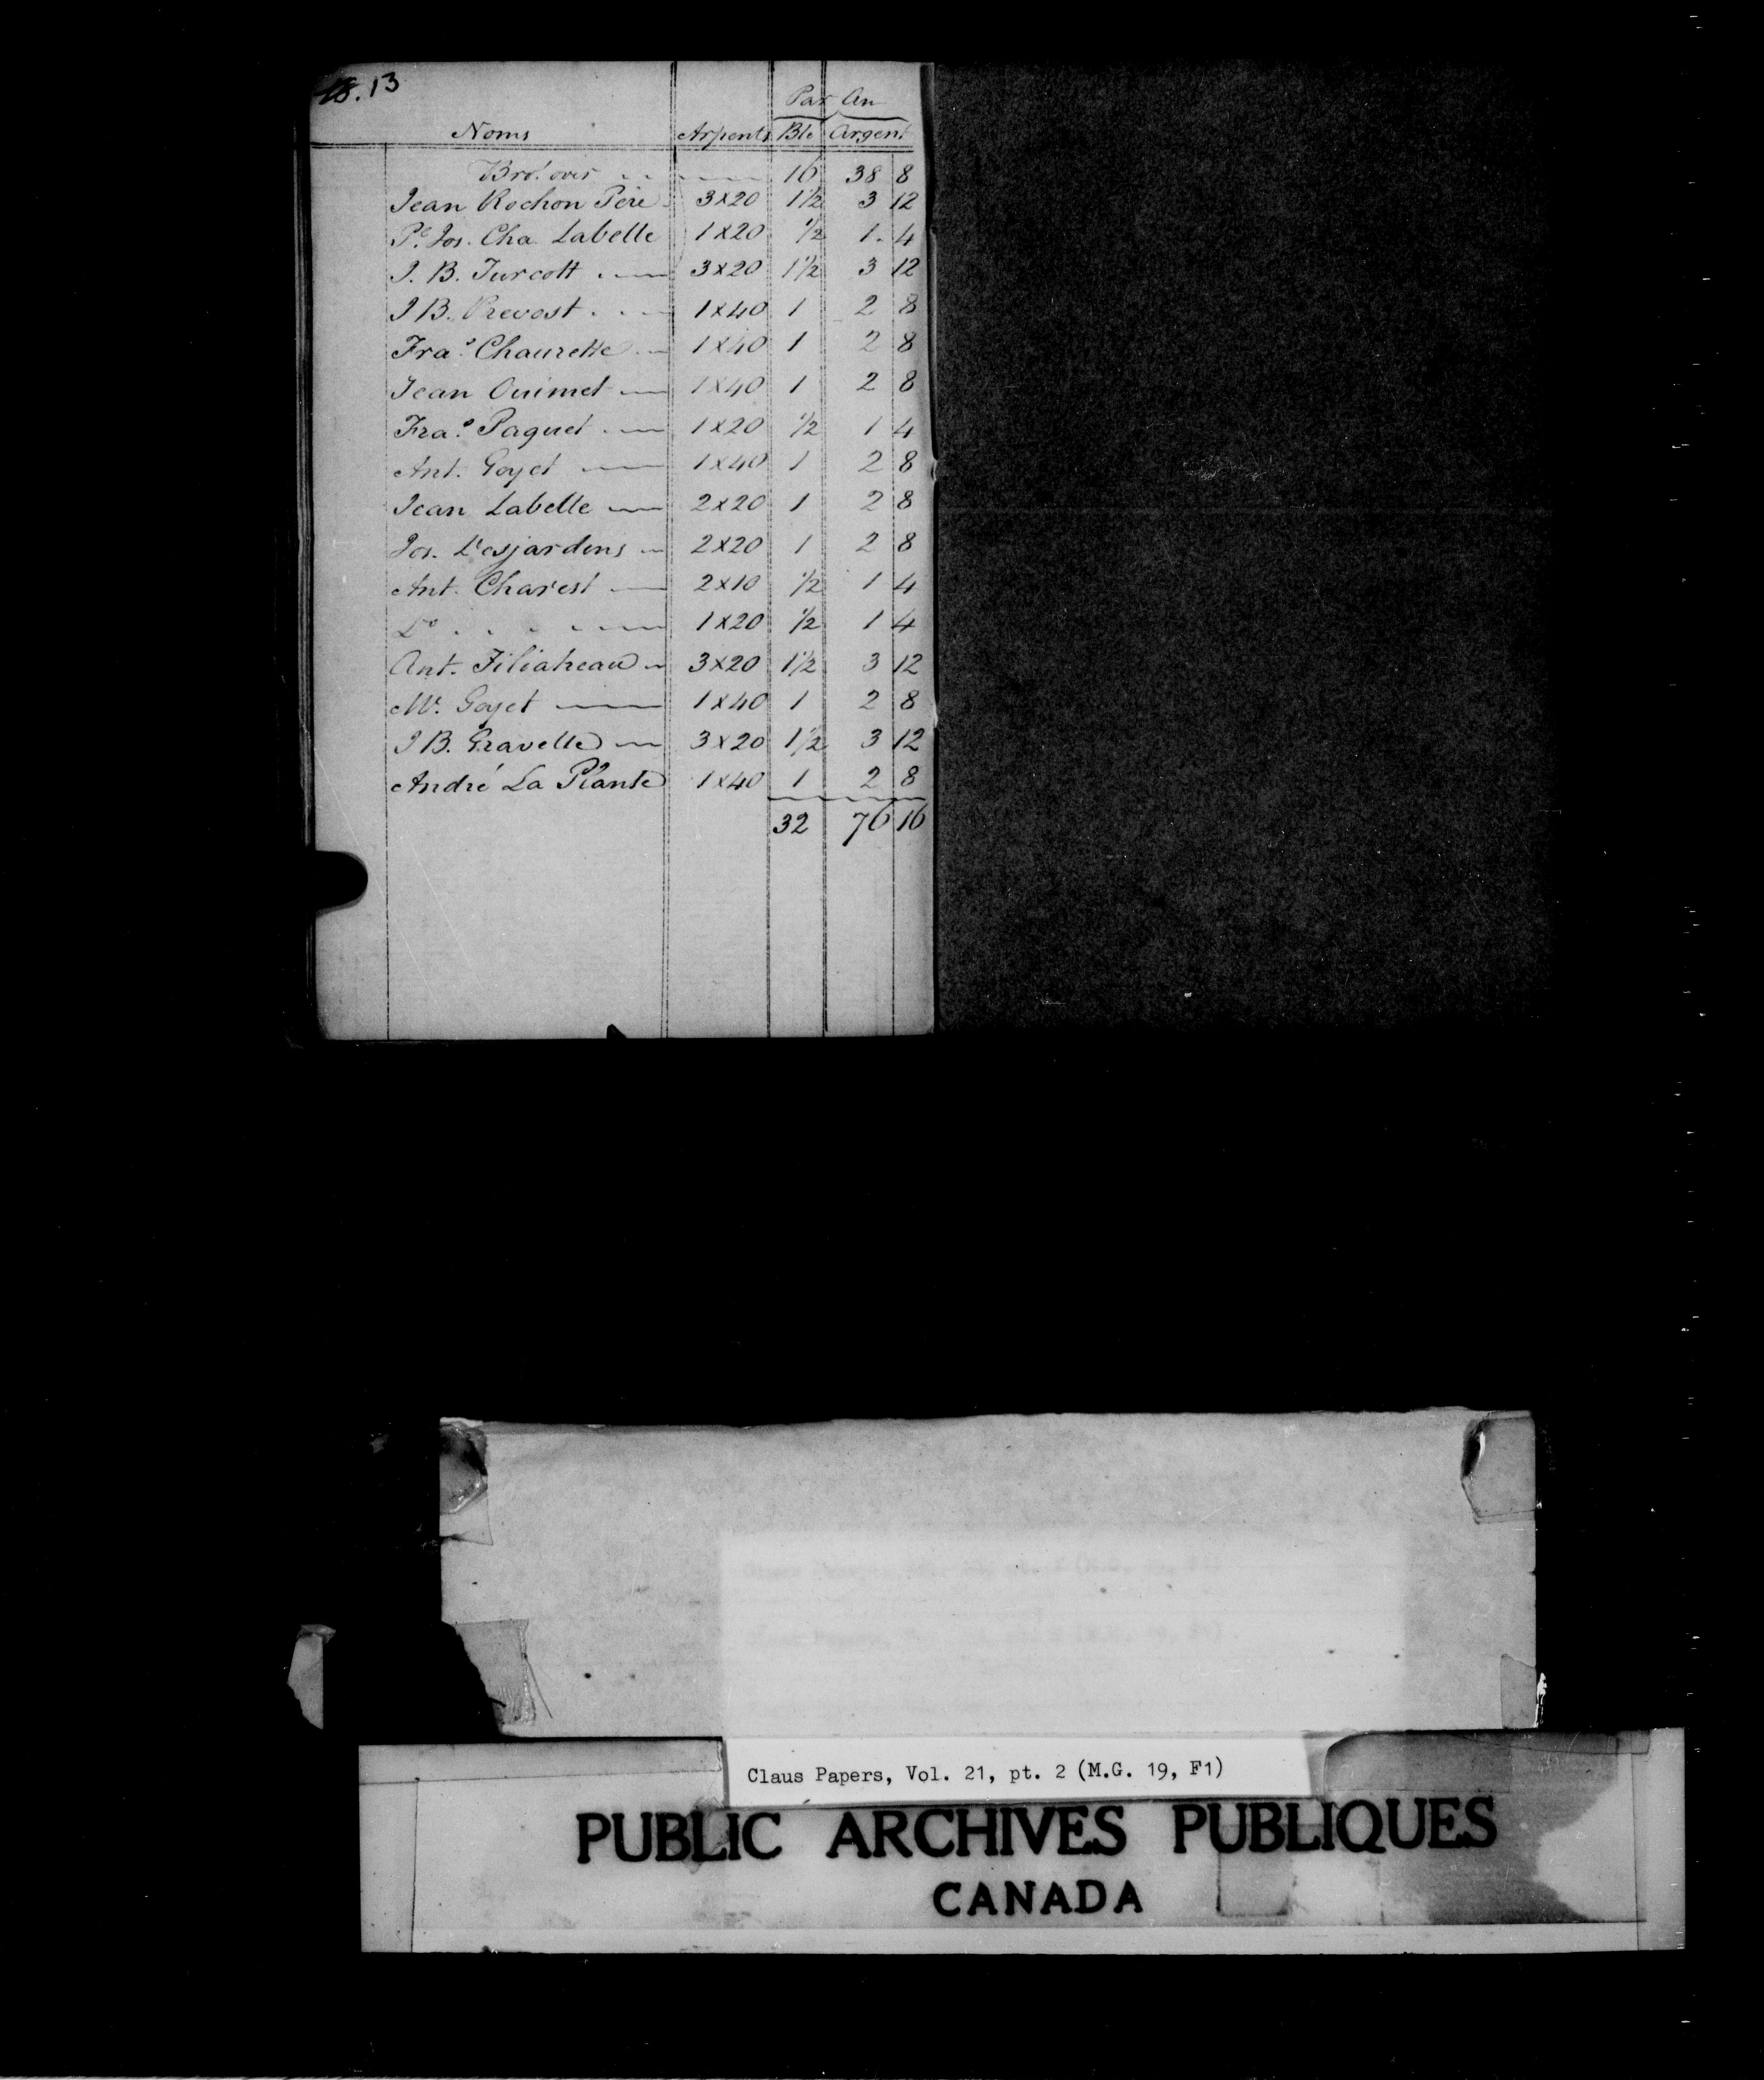 18. 13
Par An
Noms Arpents Ble Argent
Bro.t over 16 38 8
Jean Rochon Pere 3x20 1½ 3 12
Pe. Jos. Cha. Labelle 1x20 ½ 1. 4
J. B. Turcott 3x20 1½ 3 12
J B. Prevost 1x40 1 2 8
Fra.s Chaurette 1x40 1 2 8
Jean Ouimet 1x40 1 2 8
Fra.s Paquet 1x20 ½ 1 4
Ant. Goyet 1x40 1 2 8
Jean Labelle 2x20 1 2 8
Jos. Desjardins 2x20 1 2 8
Ant. Charest 2x10 ½ 1 4
Do 1x20 ½ 1 4
Ant. Filiatreau 3x20 1½ 3 12
Mr. Goyet 1x40 1 2 8
J B. Gravelle 3x20 1½ 3 12
André La Plante 1x40 1 2 8
32 76 16
Claus Papers, Vol. 21, pt. 2 (M.G. 19, F1)
PUBLIC ARCHIVES PUBLIQUES
CANADA